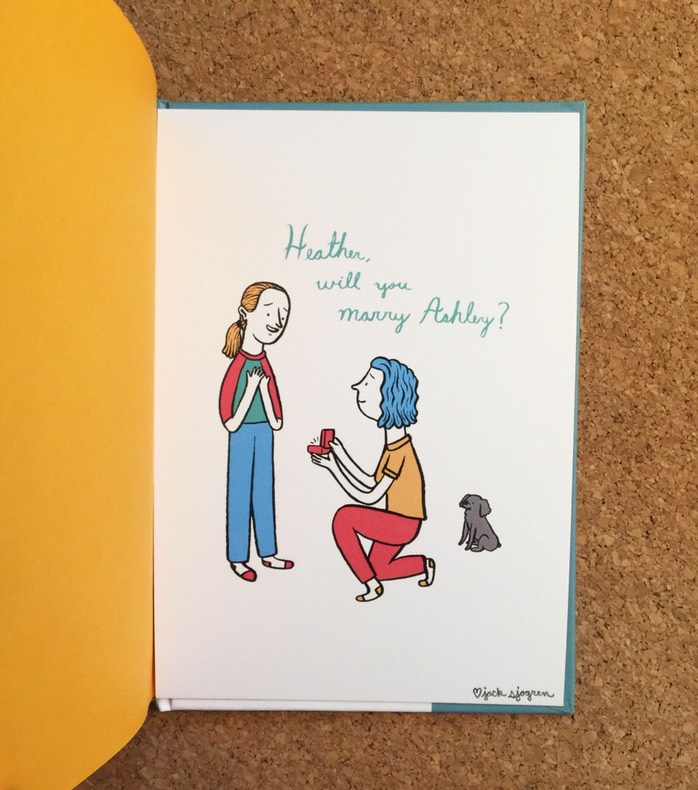 Heather,
will you
marry Ashley?
♡jack sjogren